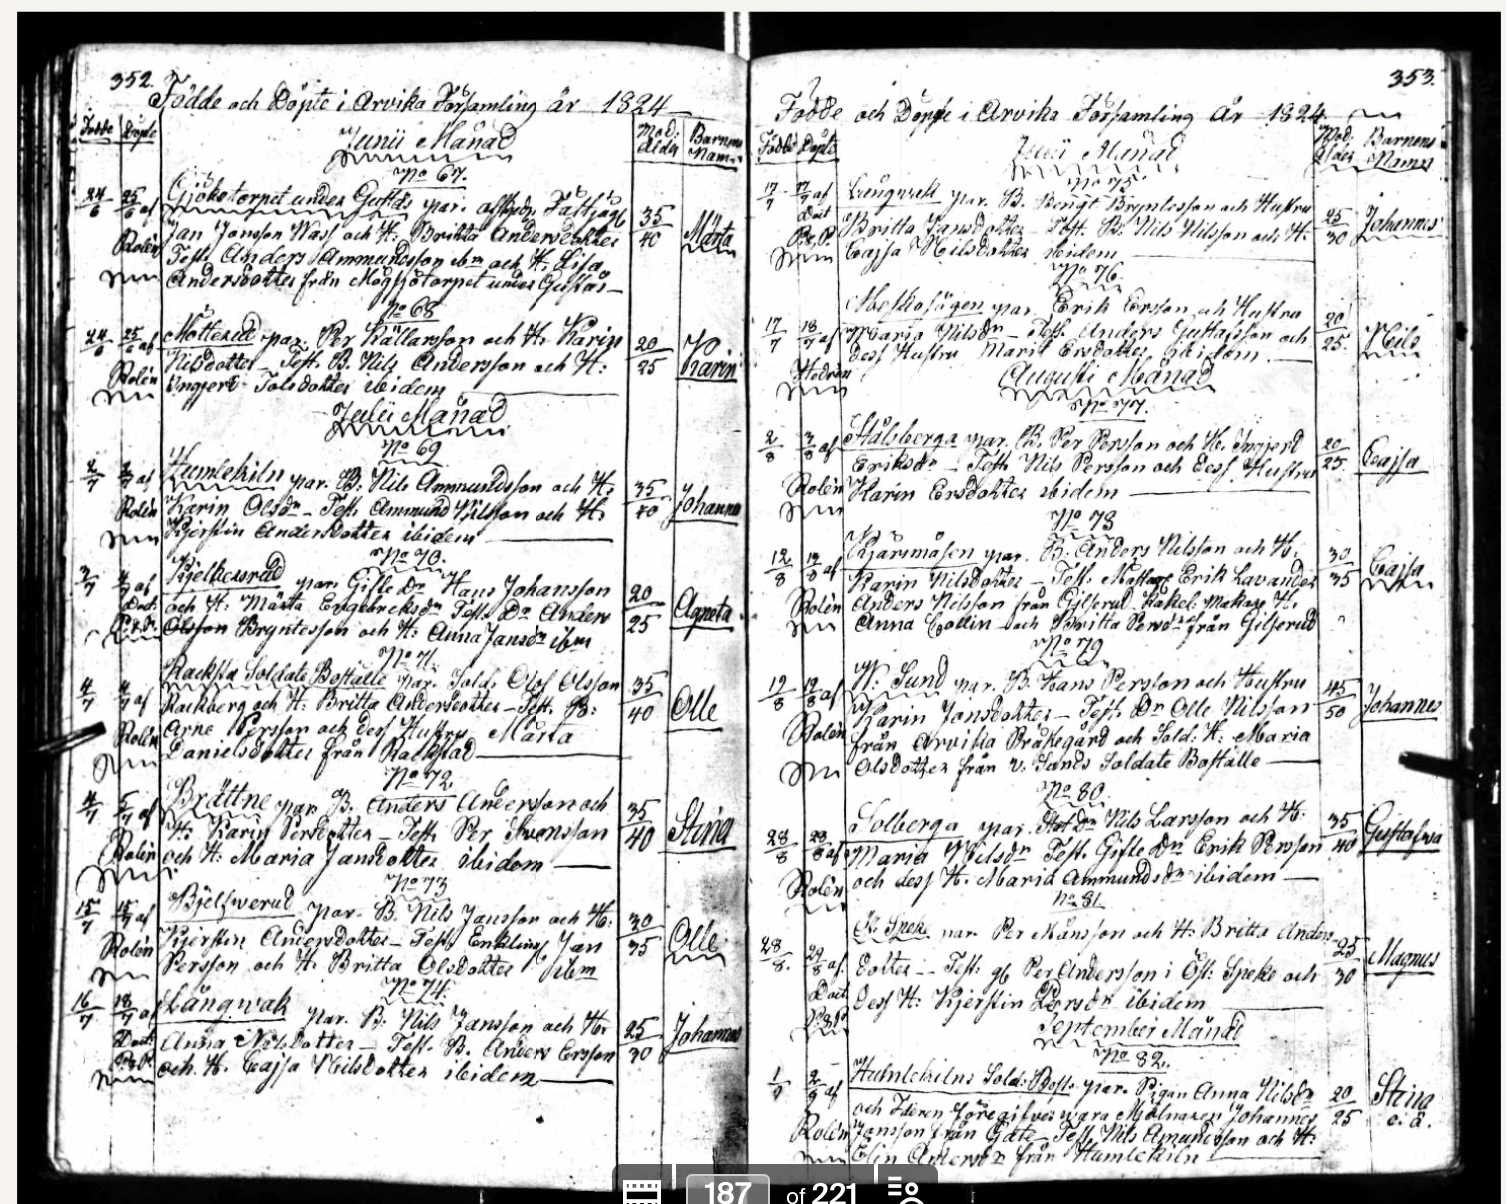 352.
Födde och Döpte i Arvika Församling år 1824
Födde Döpte
Junii Månad
Mod: Ålder
Barnens Namn
No 67.
24/6 25/6 af Rolén
Gjöketorpet under par. afsked.
Jan Jonsson och H. Britta Andersdotter
Test. Anders Ammundsson ibm och H. Lisa
Andersdotter från under
35/40
Märta
No 68
24/6 25/6 af Rolén
Mötterud par. Per Källarsson och H. Karin
Nilsdotter – Test. B. Nils Andersson och H:
Ingjerd dotter ibidem
20/25
Karin
Julii Månad
No 69
2/7 af Rolén
Humlekiln par. B. Nils Ammundsson och H.
Karin Olsdr – Test. Ammund Nilsson och H.
Kjerstin Andersdotter ibidem
35/40
Johannes
No 70.
3/7 af
par. Gifte Dr Hans Johansson
och H: Märta Engebreksdr Test. Dr Anders
Olsson Bryntesson och H. Anna Jansdr ibm
20/25
Agneta
No 71.
4/7 4/7 af Rolén
Racksta Soldate Boställe par. Sold. Olof Olsson
Rackberg och H. Britta Andersdotter – Test. B:
Arne Persson och des Hustru Märta
Danielsdotter från Rackstad
35/40
Olle
No 72
4/7 5/7 af Rolén
Brättne par. B. Anders Andersson och
H. Karin Persdotter – Test. Per Svensson
och H. Maria Jansdotter ibidem
35/40
Stina
No 73
15/7 15/7 af Rolén
Bjelfwerud par. B. Nils Jansson och H.
Kjerstin Andersdotter – Test. Enkling Jan
Persson och H. Britta Olsdotter ibm
30/35
Olle
No 74.
16/7 18/7 af
Långwak par. B. Nils Jansson och H.
Anna Nilsdotter – Test. B. Anders Ersson
och H. Cajsa Nilsdotter ibidem
25/30
Johannes
353.
Födde och Döpte i Arvika Församling År 1824
Födde Döpte
Julii Månad
Mod: Ålder
Barnens Namn
No 75
17/7 17/7 af
Långwak par. B. Bengt Bryntesson och Hustru
Britta Jansdotter – Test. B. Nils Nilsson och H.
Cajsa Nilsdotter ibidem
25/30
Johannes
No 76.
17/7 18/7 af Hedrén
par. Erik Ersson och Hustru
Maria Nilsdr – Test. Anders Gustafsson och
dess Hustru Marit Ersdotter ibidem
20/25
Nils
Augusti Månad
No 77.
2/8 3/8 af Rolén
Stålsberga par. B. Per Persson och H. Ingjerd
Eriksdr – Test. Nils Persson och dess Hustru
Karin Ersdotter ibidem
20/25
Cajsa
No 78
12/8 13/8 af Rolén
Kjärsmåsen par. B. Anders Nilsson och H.
Karin Nilsdotter – Test. Erik Lavander
Anders Nilsson från Giljerud H.
Anna Collin och Britta Persdr från Giljerud
30/35
Cajsa
No 79
19/8 af Rolén
W. Sund par. B. Hans Persson och Hustru
Karin Jonsdotter – Test. Dr Olle Nilsson
från Arvika Pråstegård och Sold: H. Maria
Olsdotter från v. Sunds Soldate Boställe
45/50
Johannes
No 80.
28/8 28/8 af Rolén
Solberga par. Nils Larsson och H.
Maria Nilsdr Test. Gifte Dr Erik Persson
och dess H. Maria Ammundsdr ibidem
35/40
Gustafwa
No 81
28/8. 29/8 af
Speke par. Per Månsson och H. Britta Anders
dotter – Test. Per Andersson i Öst. Speke och
dess H. Kjerstin Persdr ibidem
25/30
Magnus
September Månad
No 82.
1/9 2/9 af Rolén
Humlekilns Sold. Bost. par. Pigan Anna Nilsdr
och Fadren föregifves wara Johannes
Jansson från Gate – Test. Nils Amundsson och H:
Elin Andersdr från Humlekiln
20/25
Stina
o. ä.
187 of 221